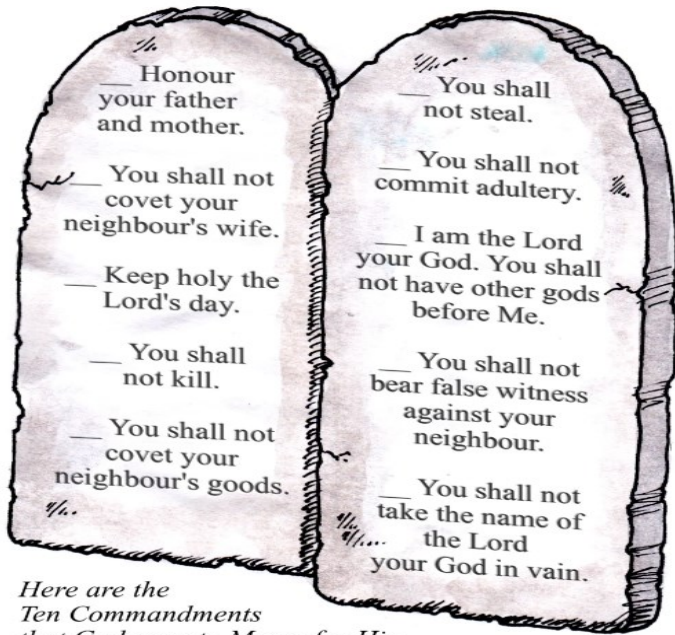 __ Honour
your father
and mother.
__ You shall not
covet your
neighbour's wife.
__ Keep holy the
Lord's day.
__ You shall
not kill.
__ You shall not
covet your
neighbour's goods.
__ You shall
not steal.
__ You shall not
commit adultery.
__ I am the Lord
your God. You shall
not have other gods
before Me.
__ You shall not
bear false witness
against your
neighbour.
__ You shall not
take the name of
the Lord
your God in vain.
Here are the
Ten Commandments